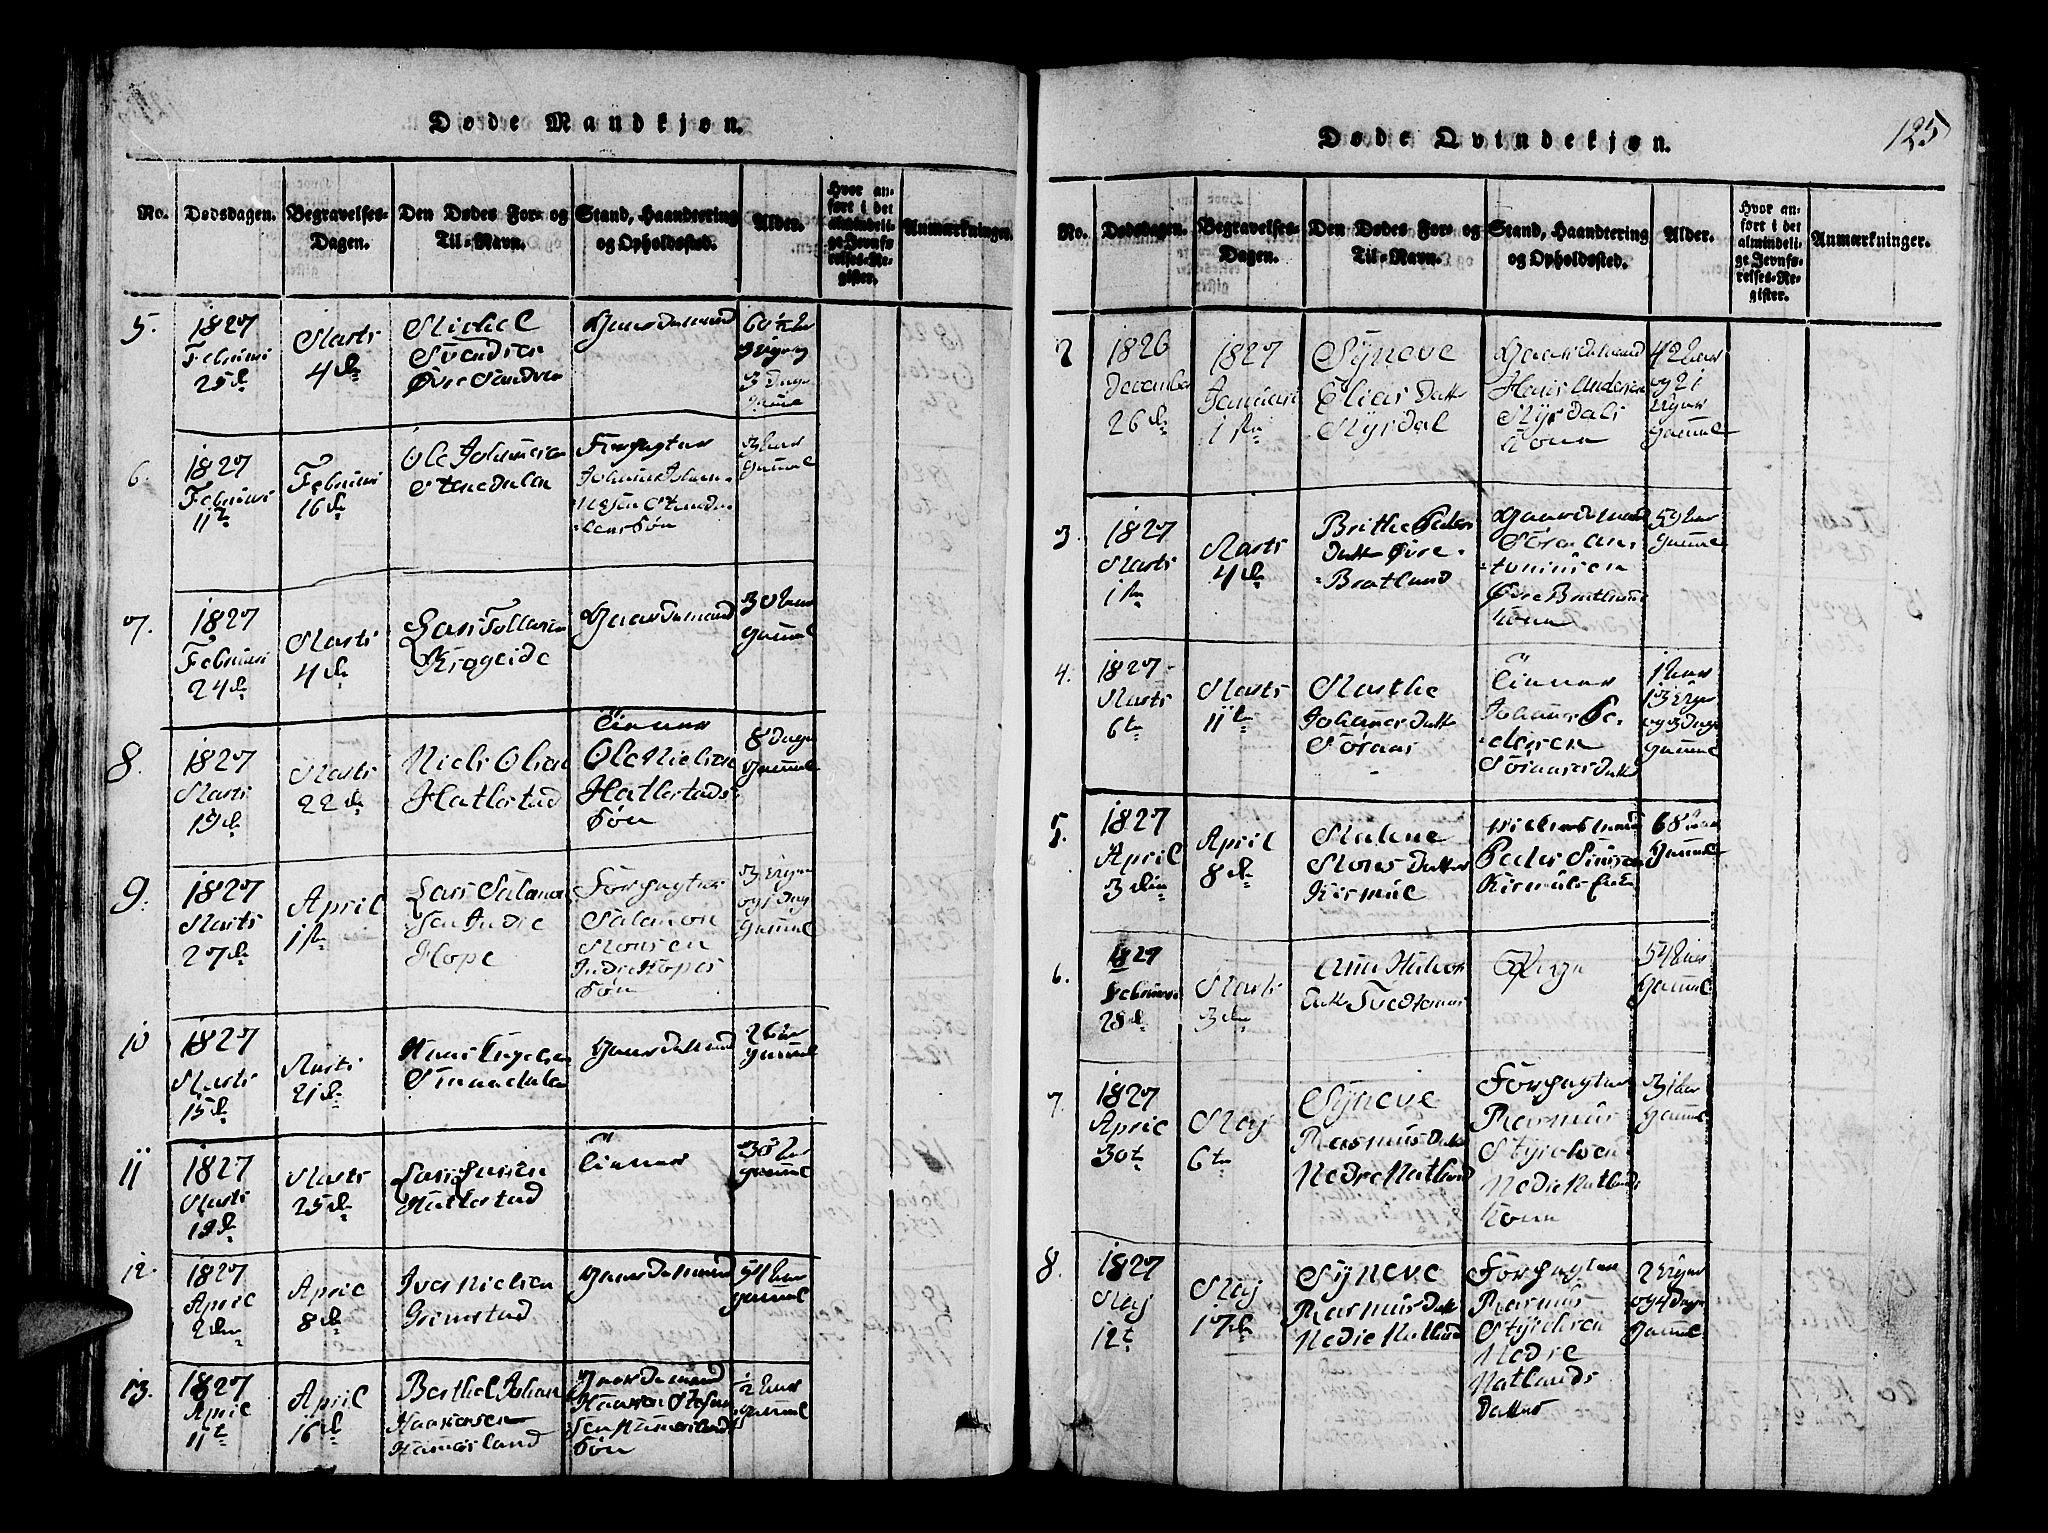 Døde Mandkjøn.
No.
Dødsdagen.
Begravelses-
Dagen.
Den Dødes For- og
Til-Navn.
Stand, Haandtering
og Opholdssted.
Alder.
Hvor an-
ført i det
almindeli-
ge Jevnfø-
relses-Re-
gister.
Anmærkninger.
5.
1827
Februari
25d
Marts
4d
Michel
Svendsen
Øvre
Gaardmand
60½
3 Dage
6.
1827
Februari
11t
Februari
16d
Ole Johannesen
Forpagter
Søn
3 Aar
gammel
7.
1827
Februari
24d
Marts
4d
Lars
Krogeide
Gaardmand
30 Aar
gammel
8.
1827
Marts
19d
Marts
22d
Niels Olsen
Hatlestad
Ole Nielsen
Hatlestads
Søn
8 Dage
gammel
9.
1827
Marts
27d
April
1ste
Lars Salamon
sen Indre
Hope
Forpagter
Salamon
Monsen
Indre Hopes
Søn
3 Uger
og 1 Dag
gammel
10
1827
Marts
15d
Marts
21d
Gaardmand
26 Aar
gammel
11
1827
Marts
19d
Marts
25d
Lars
Hatlestad
30 Aar
gammel
12.
1827
April
2den
April
8d
Iver Nielsen
Grimstad
Gaardmand
54 Aar
gammel
13.
1827
April
11t
April
16d
Berthel Johan
Haaversen
Hamersland
Gaardmand
Søn
½ Aar
gammel
Døde Qvindekjøn.
125
No.
Dødsdagen.
Begravelses-
Dagen.
Den Dødes For- og
Til-Navn.
Stand, Haandtering
og Opholdssted.
Alder.
Hvor an-
ført i det
almindeli-
ge Jevnfø-
relses-Re-
gister.
Anmærkninger.
2
1826
December
26d
1827
Januari
1ste
Syneve
Elias Datter
Myrdal
Gaardmand
Hans Andersen
Myrdals
Kone
42 Aar
og 21
Uger
gammel
3.
1827
Marts
1ste
Marts
4d
Brithe Peders
Datter Øvre
Bratland
Gaardmand
Søren An-
toniusen
Øvre Bratlands
Kone
59 Aar
gammel
4.
1827
Marts
6te
Marts
11te
Marthe
Johannes Datter
Søraas
Johannes Pe-
dersen
Søraases Datter
1 Aar
13 Uger
og 3 Dage
gammel
5.
1827
April
3die
April
8d
Malene
Mons Datter
Kismul
Peder
68 Aar
gammel
6.
1827
Februari
28d
Marts
3die
54 Aar
gammel
7.
1827
April
30t
Maj
6te
Syneve
Rasmus Datter
Nedre Natland
Forpagter
Rasmus
Styrcksen
Nedre Natlands
Kone
31 Aar
gammel
8.
1827
Maj
12t
Maj
17d
Syneve
Rasmus Datter
Nedre Natland
Forpagter
Rasmus
Styrcksen
Nedre
Natlands
Datter
2 Uger
og 4 Dage
gammel